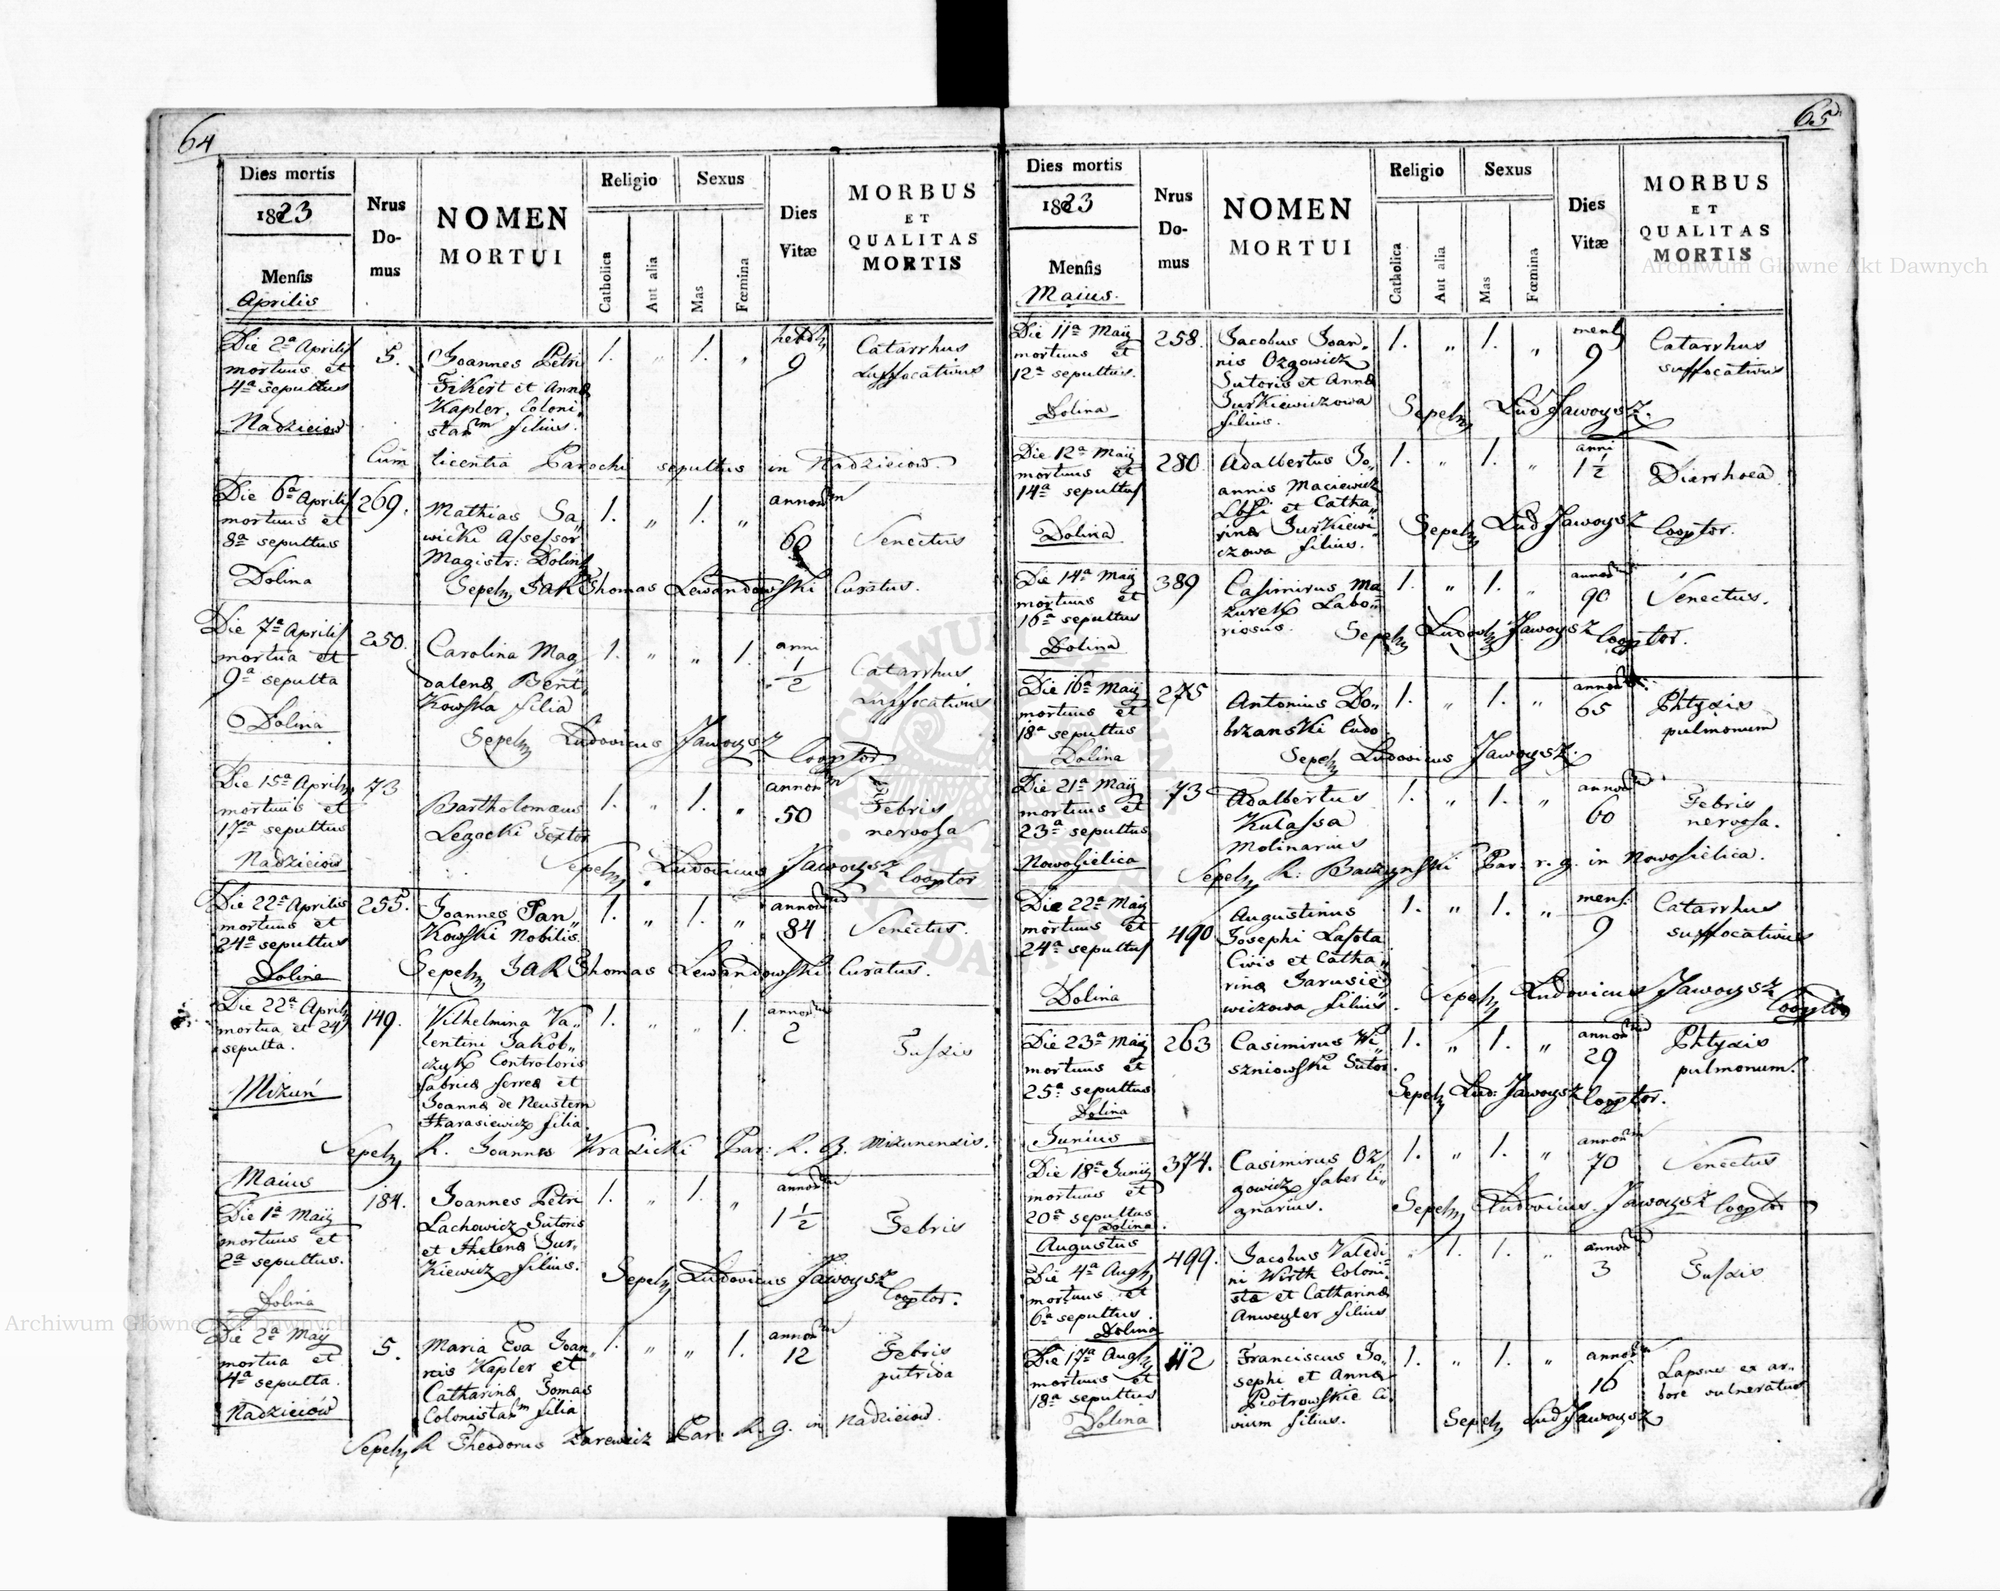 64
Dies mortis
1823
Mensis
Aprilis
Nrus
Do-
mus
NOMEN
MORTUI
Religio
Catholica
Aut alia
Sexus
Mas
Fœmina
Dies
Vitæ
MORBUS
ET
QUALITAS
MORTIS
Die 2ª Aprilis 5. Joannes Petri 1. „ 1. „ 9 Catarrhus
mortuus et Fikert et Annæ suffocativus
4ª sepultus Kapler Coloni„
Nadzieiow starum filius.
Cum licentia Parochi sepultus in Nadzieiow.
Die 6ª Aprilis 269. Mathias Sa„ 1. „ 1. „ annorum
mortuus et wicki Assessor 60 Senectus
8ª sepultus Magistr: Dolin
Dolina Sepeliv Thomas Lewandowski Curatus.
Die 7ª Aprilis 250. Carolina Mag 1. „ „ 1. anni
mortua et dalena Bent„ 1/2 Catarrhus
9ª sepulta kowska filia suffocativus
Dolina Ludovicus Jaworysz Cooptor.
Die 15ª Aprilis 73 Bartholomæus 1. „ 1. „ annorum Febris
mortuus et Legocki Textor 50 nervosa
17ª sepultus
Nadzieiow Ludovicus Jaworysz Cooptor
Die 22ª Aprilis 255. Joannes Jan„ 1. „ 1. „ annorum
mortuus et kowski Nobilis 84 Senectus.
24ª sepultus
Dolina Thomas Lewandowski Curatus.
Die 22ª Aprilis 149. Vilhelmina Va„ 1. „ „ 1. annorum
mortua et 24 lentini Jakob„ 2 Tussis
sepulta. czyk Controloris
Mizuń fabricæ ferreæ et
Joannæ de Neustern
Harasiewicz filia
R. Joannes Krasicki Par: R. G. Mizunensis.
Maius
Die 1ª Maij 184. Joannes Petri 1. „ 1. „ annorum
mortuus et Lachowicz Sutoris 1 1/2 Febris
2ª sepultus. et Helenæ Jur„
kiewicz filius.
Dolina Ludovicus Jaworysz Cooptor.
Die 2ª Maij 5. Maria Eva Joan„ 1. „ „ 1. annorum Febris
mortua et nis Kapler et 12 putrida
4ª sepulta. Catharinæ Tomas
Nadzieiów Colonistarum filia
R Theodorus Par: R. g. in Nadzieiow.
65
Dies mortis
1823
Mensis
Maius.
Nrus
Do-
mus
NOMEN
MORTUI
Religio
Catholica
Aut alia
Sexus
Mas
Fœmina
Dies
Vitæ
MORBUS
ET
QUALITAS
MORTIS
Die 11ª Maij 258. Jacobus Joan„ 1. „ 1. „ mens Catarrhus
mortuus et nis Ozgowicz 9 suffocativus
12ª sepultus. Sutoris et Annæ
Dolina Jurkiewiczowa
filius. Lud Jaworysz.
Die 12ª Maij 280. Adalbertus Jo„ 1. „ 1. „ anni
mortuus et annis Maciewicz 1 1/2 Diarrhoea
14ª sepultus et Catha„
Dolina rinæ Jurkiewi„
czowa filius. Lud Jaworysz Cooptor.
Die 14ª Maij 389 Casimirus Ma 1. „ 1. „ annorum
mortuus et zurek Labo„ 90 Senectus.
16ª sepultus riosus. Ludov Jaworysz Cooptor.
Dolina
Die 16ª Maij 275 Antonius Do„ 1. „ 1. „ annorum Phtysis
mortuus et brzanski 65 pulmonum
18ª sepultus
Dolina Ludovicus Jaworysz.
Die 21ª Maij 73 Adalbertus 1. „ 1. „ annorum Febris
mortuus et Kulassa 60 nervosa.
23ª sepultus Molinarius
Nowosielica R: Par: r. g. in Nowosielica.
Die 22ª Maij 490 Augustinus 1. „ 1. „ mens. Catarrhus
mortuus et Josephi Lasota 9 suffocativus
24ª sepultus Civis et Catha„
Dolina rinæ Jarusie„
wiczowa filius Ludovicus Jaworysz Cooptor
Die 23ª Maij 263 Casimirus Wi„ 1. „ 1. „ annorum Phtysis
mortuus et szniowski Sutor 29 pulmonum.
25ª sepultus Lud: Jaworysz Cooptor.
Dolina
Junius
Die 18ª Junij 374. Casimirus Oz 1. „ 1. „ annorum
mortuus et gowicz faber li„ 70 Senectus
20ª sepultus gnarius. Ludovicus Jaworysz Cooptor
Dolina.
Augustus
Die 4ª Aug 499. Jacobus „ 1. 1. „ annorum
mortuus et ni Wirth Coloni„ 3 Tussis
6ª sepultus stæ et Catharinæ
Dolina Anweyler filius
Die 17ª Aug 112 Franciscus Jo„ 1. „ 1. „ annorum Lapsus ex ar„
mortuus et sephi et Annæ 16 bore vulneratus
18ª sepultus Piotrowskie Ci„
Dolina vium filius. Lud Jaworysz
Archiwum Główne Akt Dawnych
Archiwum Główne Akt Dawnych